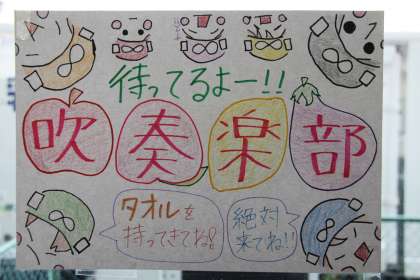 待ってるよー!!
吹奏楽部
タオルを
持ってきてね!
絶対
来てね!!